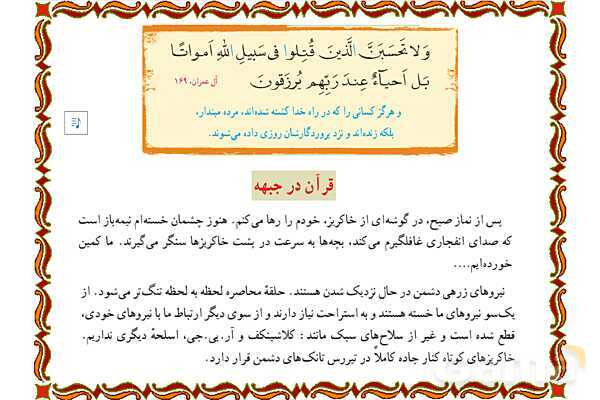 وَلا تَحسَبَنَّ الَّذینَ قُتِلوا فی سَبیلِ اللّٰهِ اَمواتًا
بَل اَحیآءٌ عِندَ رَبِّهِم یُرزَقونَ
آل عمران، ۱۶۹
و هرگز کسانی را که در راه خدا کشته شده‌اند، مرده مپندار،
بلکه زنده‌اند و نزد پروردگارشان روزی داده می‌شوند.
قرآن در جبهه
پس از نماز صبح، در گوشه‌ای از خاکریز، خودم را رها می‌کنم. هنوز چشمان خسته‌ام نیمه‌باز است
که صدای انفجاری غافلگیرم می‌کند، بچه‌ها به سرعت در پشت خاکریزها سنگر می‌گیرند. ما کمین
خورده‌ایم....
نیروهای زرهی دشمن در حال نزدیک شدن هستند. حلقهٔ محاصره لحظه به لحظه تنگ‌تر می‌شود. از
یک‌سو نیروهای ما خسته هستند و به استراحت نیاز دارند و از سوی دیگر ارتباط ما با نیروهای خودی،
قطع شده است و غیر از سلاح‌های سبک مانند : کلاشینکف و آر.پی.جی، اسلحهٔ دیگری نداریم.
خاکریزهای کوتاه کنار جاده کاملاً در تیررس تانک‌های دشمن قرار دارد.